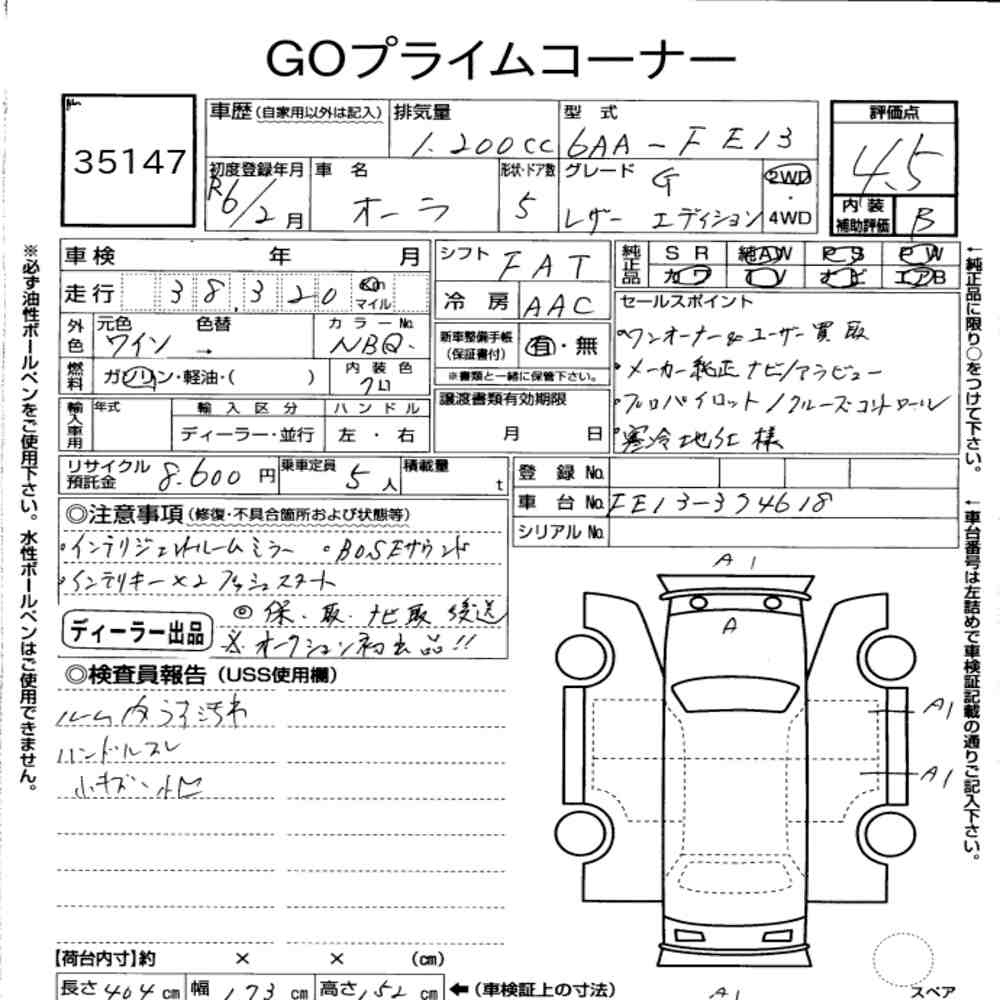 GOプライムコーナー
35147
車歴(自家用以外は記入) 排気量 1.200cc 型式 6AA-FE13
評価点 4.5
初度登録年月 R6/2月 車名 オーラ 形状・ドア数 5 グレード G レザーエディション 2WD・4WD
内装補助評価 B
車検 年 月
走行 38,320 Km マイル
シフト FAT
冷房 AAC
純正品 SR 純AW PS PW
カワ TV ナビ エアB
外色 元色 ワイン 色替 → カラーNo. NBQ.
燃料 ガソリン・軽油・( ) 内装色 クロ
新車整備手帳(保証書付) 有・無
※書類と一緒に保管下さい。
輸入車用 年式 輸入区分 ディーラー・並行 ハンドル 左・右
譲渡書類有効期限 月 日
セールスポイント
・ワンオーナー&ユーザー買取
・メーカー純正ナビ/アラビュー
・プロパイロット/クルーズコントロール
・寒冷地仕様
リサイクル預託金 8.600円 乗車定員 5人 積載量 t
登録No.
車台No. FE13-394618
シリアルNo.
◎注意事項(修復・不具合箇所および状態等)
・インテリジェントルームミラー ・BOSEサウンド
・インテリキー×2 プッシュスタート
◎保.取.ナビ取 後送
ディーラー出品 ※オークション初出品!!
◎検査員報告(USS使用欄)
ルーム内ウス汚れ
ハンドルスレ
小キズ・小凹
A1
A
A1
A1
A1
スペア
【荷台内寸】約 × × (cm)
長さ 404cm 幅 173cm 高さ 152cm ←(車検証上の寸法)
※必ず油性ボールペンをご使用下さい。水性ボールペンはご使用できません。
←純正品に限り○をつけて下さい。
←車台番号は左詰めで車検証記載の通りご記入下さい。